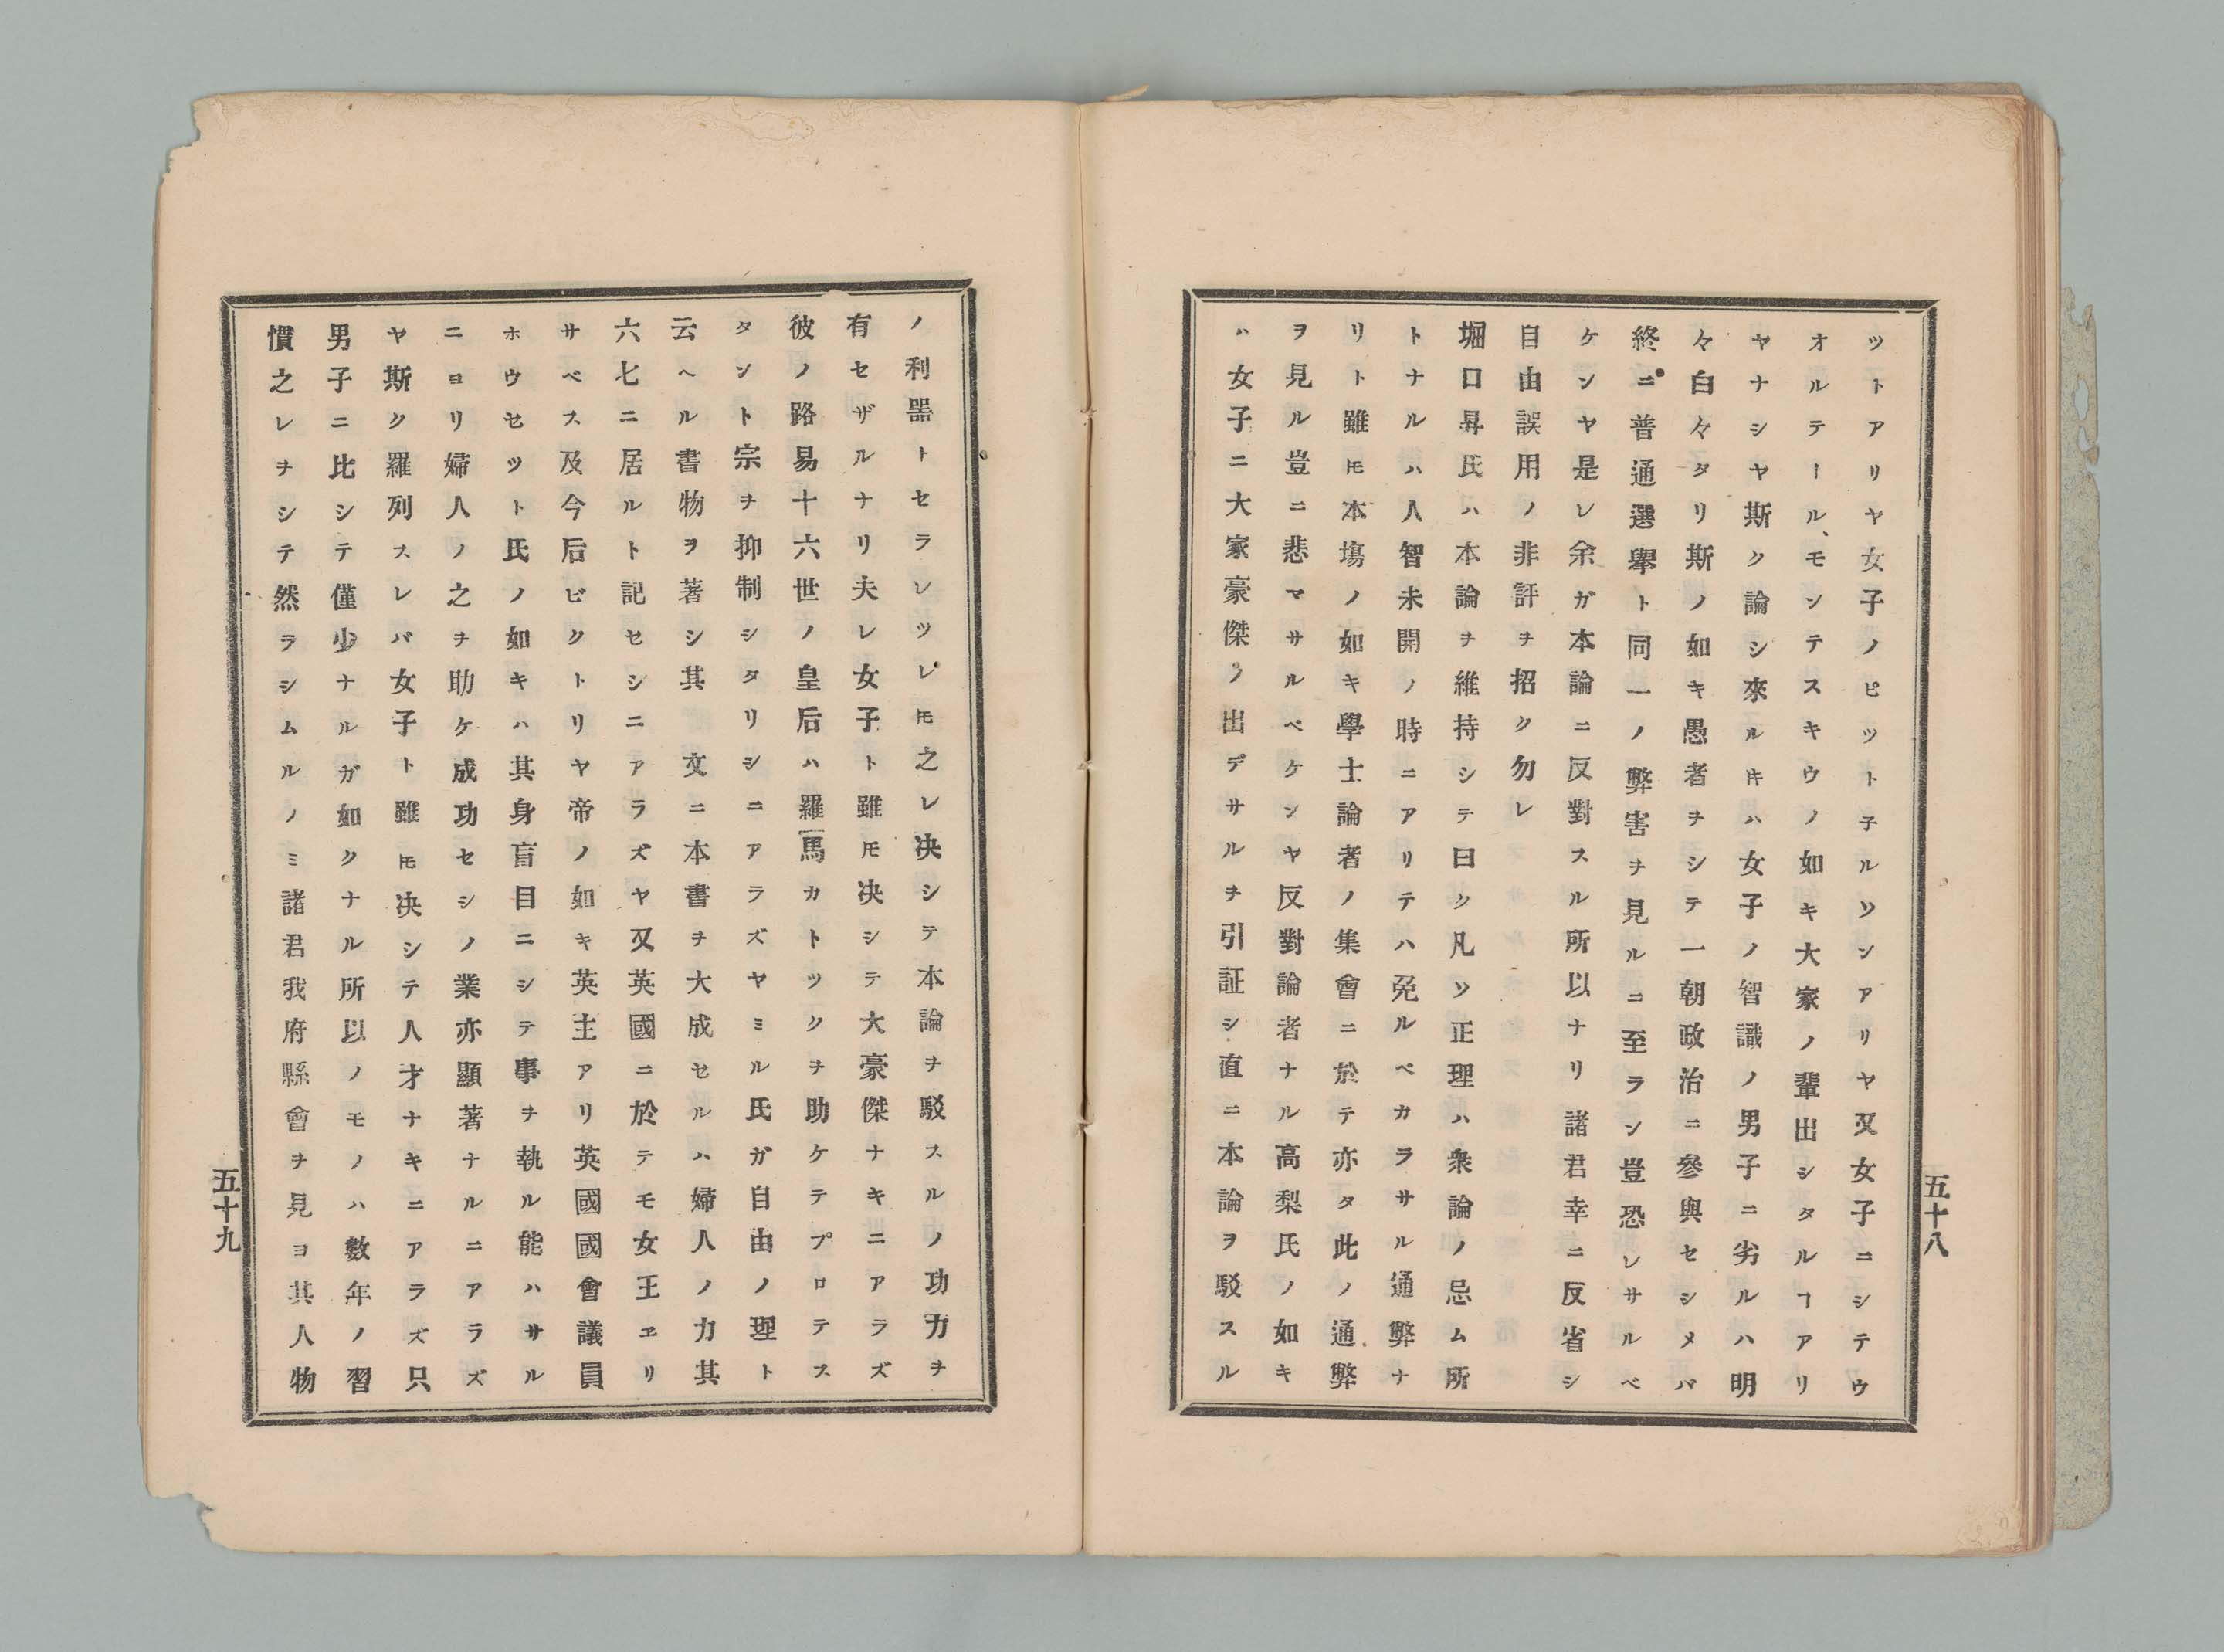 ツトアリヤ女子ノピツト子ルソンアリヤ又女子ニシテウ
オルテール、モンテスキウノ如キ大家ノ輩出シタルヿアリ
ヤナシヤ斯ク論シ來ルキハ女子ノ智識ノ男子ニ劣ルハ明
々白々タリ斯ノ如キ愚者ヲシテ一朝政治ニ參與セシメバ
終ニ普通選擧ト同一ノ弊害ヲ見ルニ至ラン豈恐レサルベ
ケンヤ是レ余ガ本論ニ反對スル所以ナリ諸君幸ニ反省シ
自由誤用ノ非評ヲ招ク勿レ
堀口昇氏ハ本論ヲ維持シテ曰ク凡ソ正理ハ衆論ノ忌ム所
トナルハ人智未開ノ時ニアリテハ免ルベカラサル通弊ナ
リト雖𪜈本塲ノ如キ學士論者ノ集會ニ於テ亦タ此ノ通弊
ヲ見ル豈ニ悲マサルベケンヤ反對論者ナル高梨氏ノ如キ
ハ女子ニ大家豪傑ノ出デサルヲ引証シ直ニ本論ヲ駁スル
五十八
ノ利噐トセラレツレ𪜈之レ决シテ本論ヲ駁スルノ功力ヲ
有セザルナリ夫レ女子ト雖𪜈决シテ大豪傑ナキニアラズ
彼ノ路易十六世ノ皇后ハ羅馬カトツクヲ助ケテプロテス
タント宗ヲ抑制シタリシニアラズヤミル氏ガ自由ノ理ト
云ヘル書物ヲ著シ其文ニ本書ヲ大成セルハ婦人ノ力其
六七ニ居ルト記セシニアラズヤ又英國ニ於テモ女王ヱリ
サベス及今后ビクトリヤ帝ノ如キ英主アリ英國國會議員
ホウセツト氏ノ如キハ其身盲目ニシテ事ヲ執ル能ハサル
ニヨリ婦人ノ之ヲ助ケ成功セシノ業亦顯著ナルニアラズ
ヤ斯ク羅列スレバ女子ト雖𪜈决シテ人才ナキニアラズ只
男子ニ比シテ僅少ナルガ如クナル所以ノモノハ數年ノ習
慣之レヲシテ然ラシムルノミ諸君我府縣會ヲ見ヨ其人物
五十九